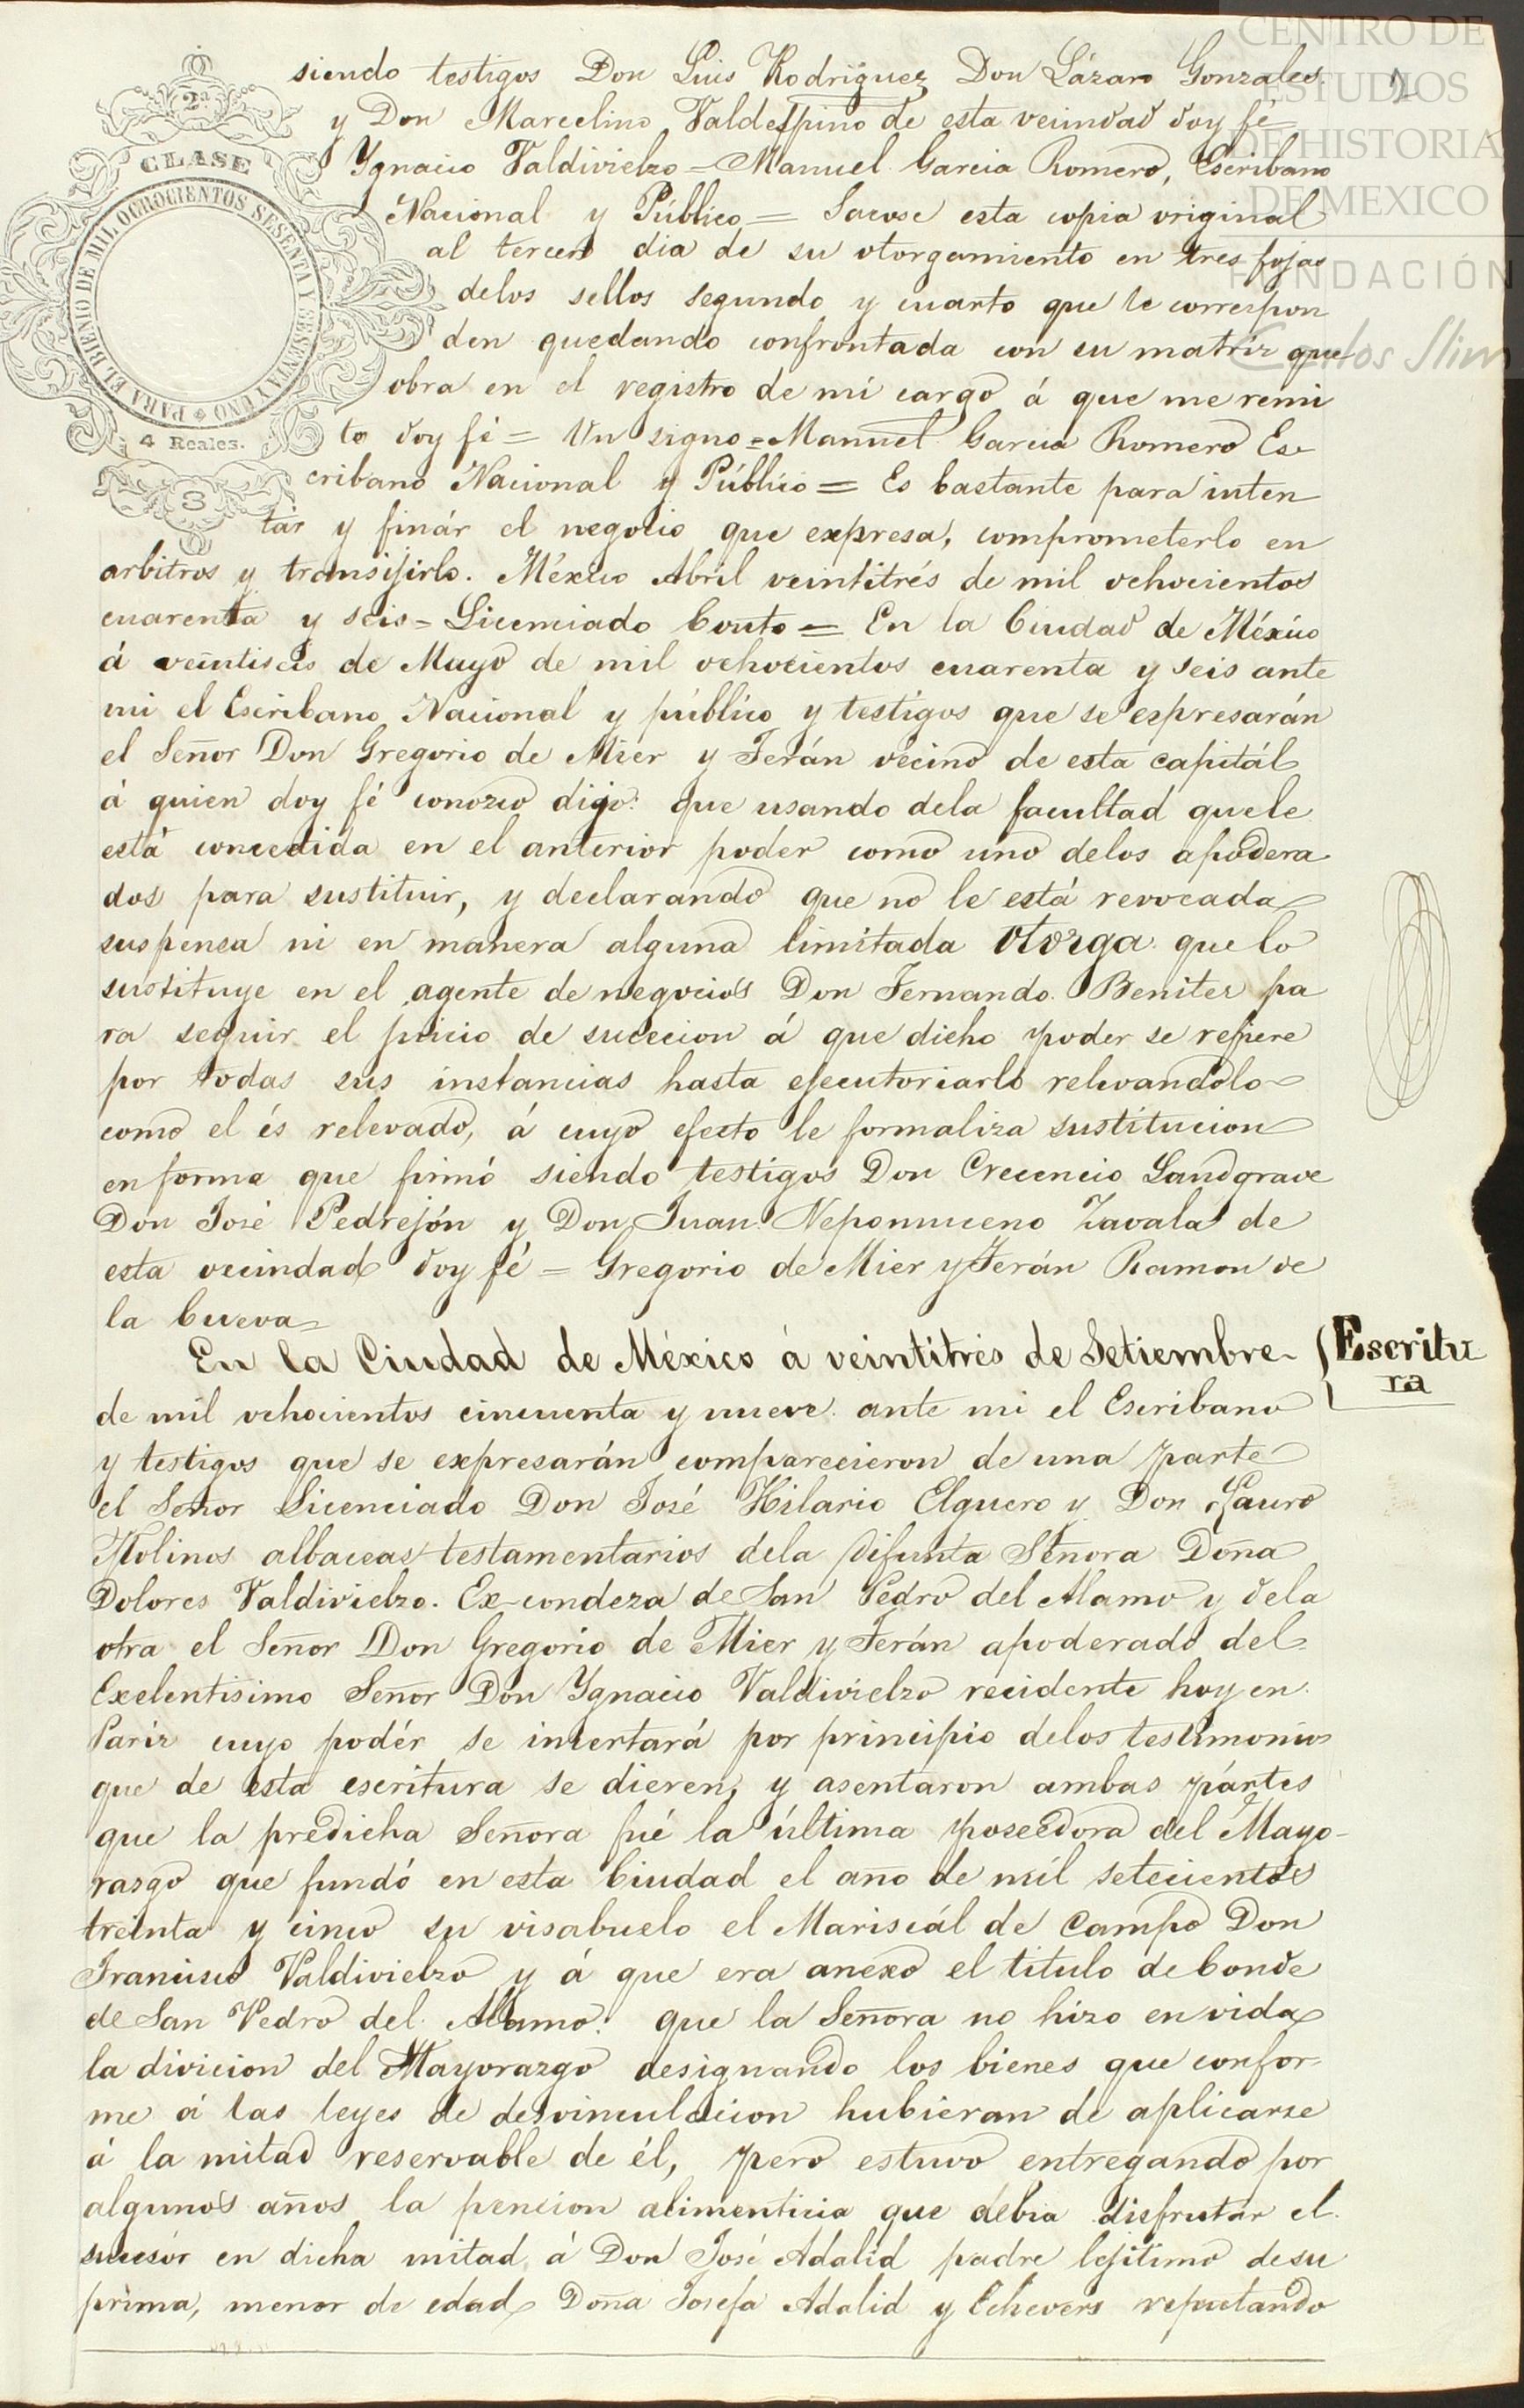 CENTRO DE
ESTUDIOS
DE HISTORIA
DE MEXICO
FUNDACIÓN
Carlos Slim
2
2ª
CLASE
PARA EL BIENIO DE MIL OCHOCIENTOS SESENTA Y SESENTA Y UNO
4 Reales.
S
siendo testigos Don Luis Rodriguez Don Lázaro Gonzales
y Don Marcelino Valdespino de esta vecindad doy fé
Ygnacio Valdivielzo = Manuel Garcia Romero, Escribano
Nacional y Público = Sacose esta copia original
al tercero dia de su otorgamiento en tres fojas
delos sellos segundo y cuarto que le correspon
den quedando confrontada con su matriz que
obra en el registro de mi cargo á que me remi
to doy fé = Un signo = Manuel Garcia Romero Es-
cribano Nacional y Público = Es bastante para inten
tár y finár el negocio que expresa, comprometerlo en
arbitros y transijirlo. México Abril veintitrés de mil ochocientos
cuarenta y seis = Licenciado Couto = En la Ciudad de México
á veintiseis de Mayo de mil ochocientos cuarenta y seis ante
mi el Escribano Nacional y público y testigos que se espresarán
el Señor Don Gregorio de Mier y Terán vecino de esta capitál
á quien doy fé conozco dijo: que usando dela facultad quele
está concedida en el anterior poder como uno delos apodera
dos para sustituir, y declarando que no le está revocada
suspensa ni en manera alguna limitada otorga que lo
sustituye en el agente de negocios Don Fernando Benites pa
ra seguir el juicio de sucecion á que dicho poder se refiere
por todas sus instancias hasta ejecutoriarlo relevandolo
como el és relevado, á cuyo efecto le formaliza sustitucion
en forma que firmó siendo testigos Don Crecencio Landgrave
Don José Pedrejón y Don Juan Nepomuceno Zavala de
esta vecindad doy fé = Gregorio de Mier y Terán Ramon de
la Cueva =
En la Ciudad de México á veintitrés de Setiembre
Escritu
ra
de mil ochocientos cincuenta y nueve ante mi el Escribano
y testigos que se expresarán comparecieron de una parte
el Señor Licenciado Don José Hilario Elguero y Don Lauro
Molinos albaceas testamentarios dela difunta Señora Doña
Dolores Valdivielzo. Ex-condeza de San Pedro del Alamo y dela
otra el Señor Don Gregorio de Mier y Terán apoderado del
Exelentisimo Señor Don Ygnacio Valdivielzo recidente hoy en
Paríz cuyo podér se incertará por principio delos testimonios
que de esta escritura se dieren, y asentaron ambas pártes
que la predicha Señora fué la última poseedora del Mayo-
razgo que fundó en esta Ciudad el año de mil setecientos
treinta y cinco su visabuelo el Mariscál de Campo Don
Francisco Valdivielzo y á que era anexo el titulo de Conde
de San Pedro del Alamo: que la Señora no hizo en vida
la divicion del Mayorazgo designando los bienes que confor-
me á las leyes de desvinculacion hubieran de aplicarse
á la mitad reservable de él, pero estuvo entregando por
algunos años la pencion alimenticia que debia disfrutar el
sucesór en dicha mitad á Don José Adalid padre lejitimo de su
prima, menor de edad Doña Josefa Adalid y Echevers reputando